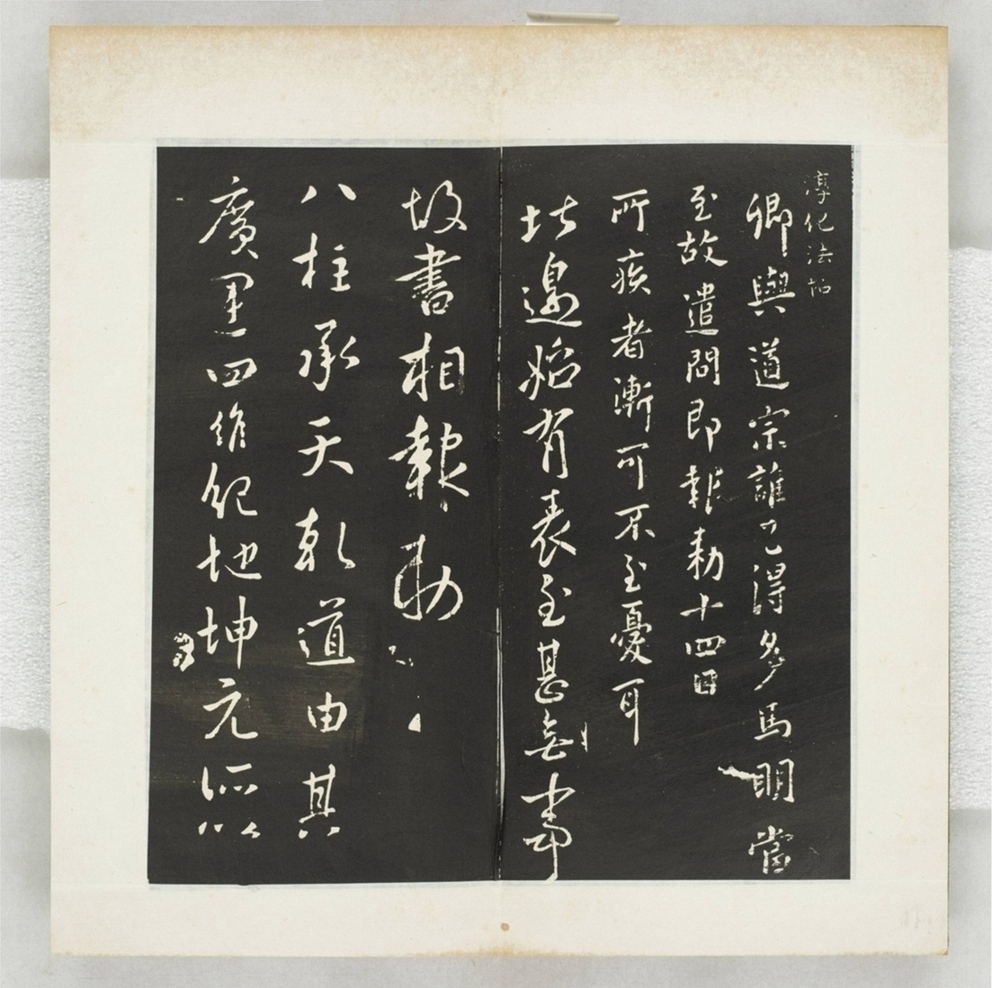 淳化法帖
卿與道宗誰已得多馬明當
至故遣問即報勅十四日
所疾者漸可不至憂耳
比邊始有表至甚無事
故書相報勅
八柱承天乾道由其
廣運四維紀地坤元所以